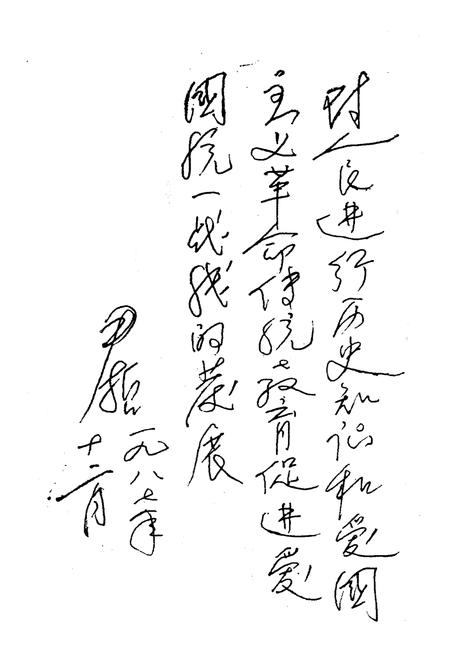 对人民进行历史知识和爱國
主义革命传统教育促进爱
國统一战线的發展
尹哲
一九八七年
十二月